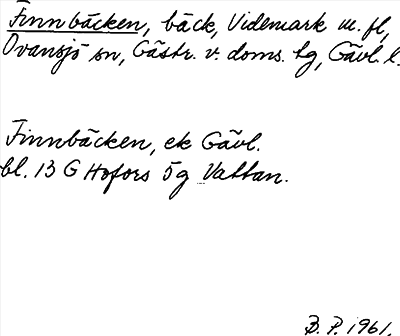 Finnbäcken, bäck, Videmark m. fl,
Ovansjö sn, Gästr. v. doms. tg, Gävl. l.
Finnbäcken, ek Gävl.
bl. 13 G Hofors 5g Vattan.
B. P. 1961.